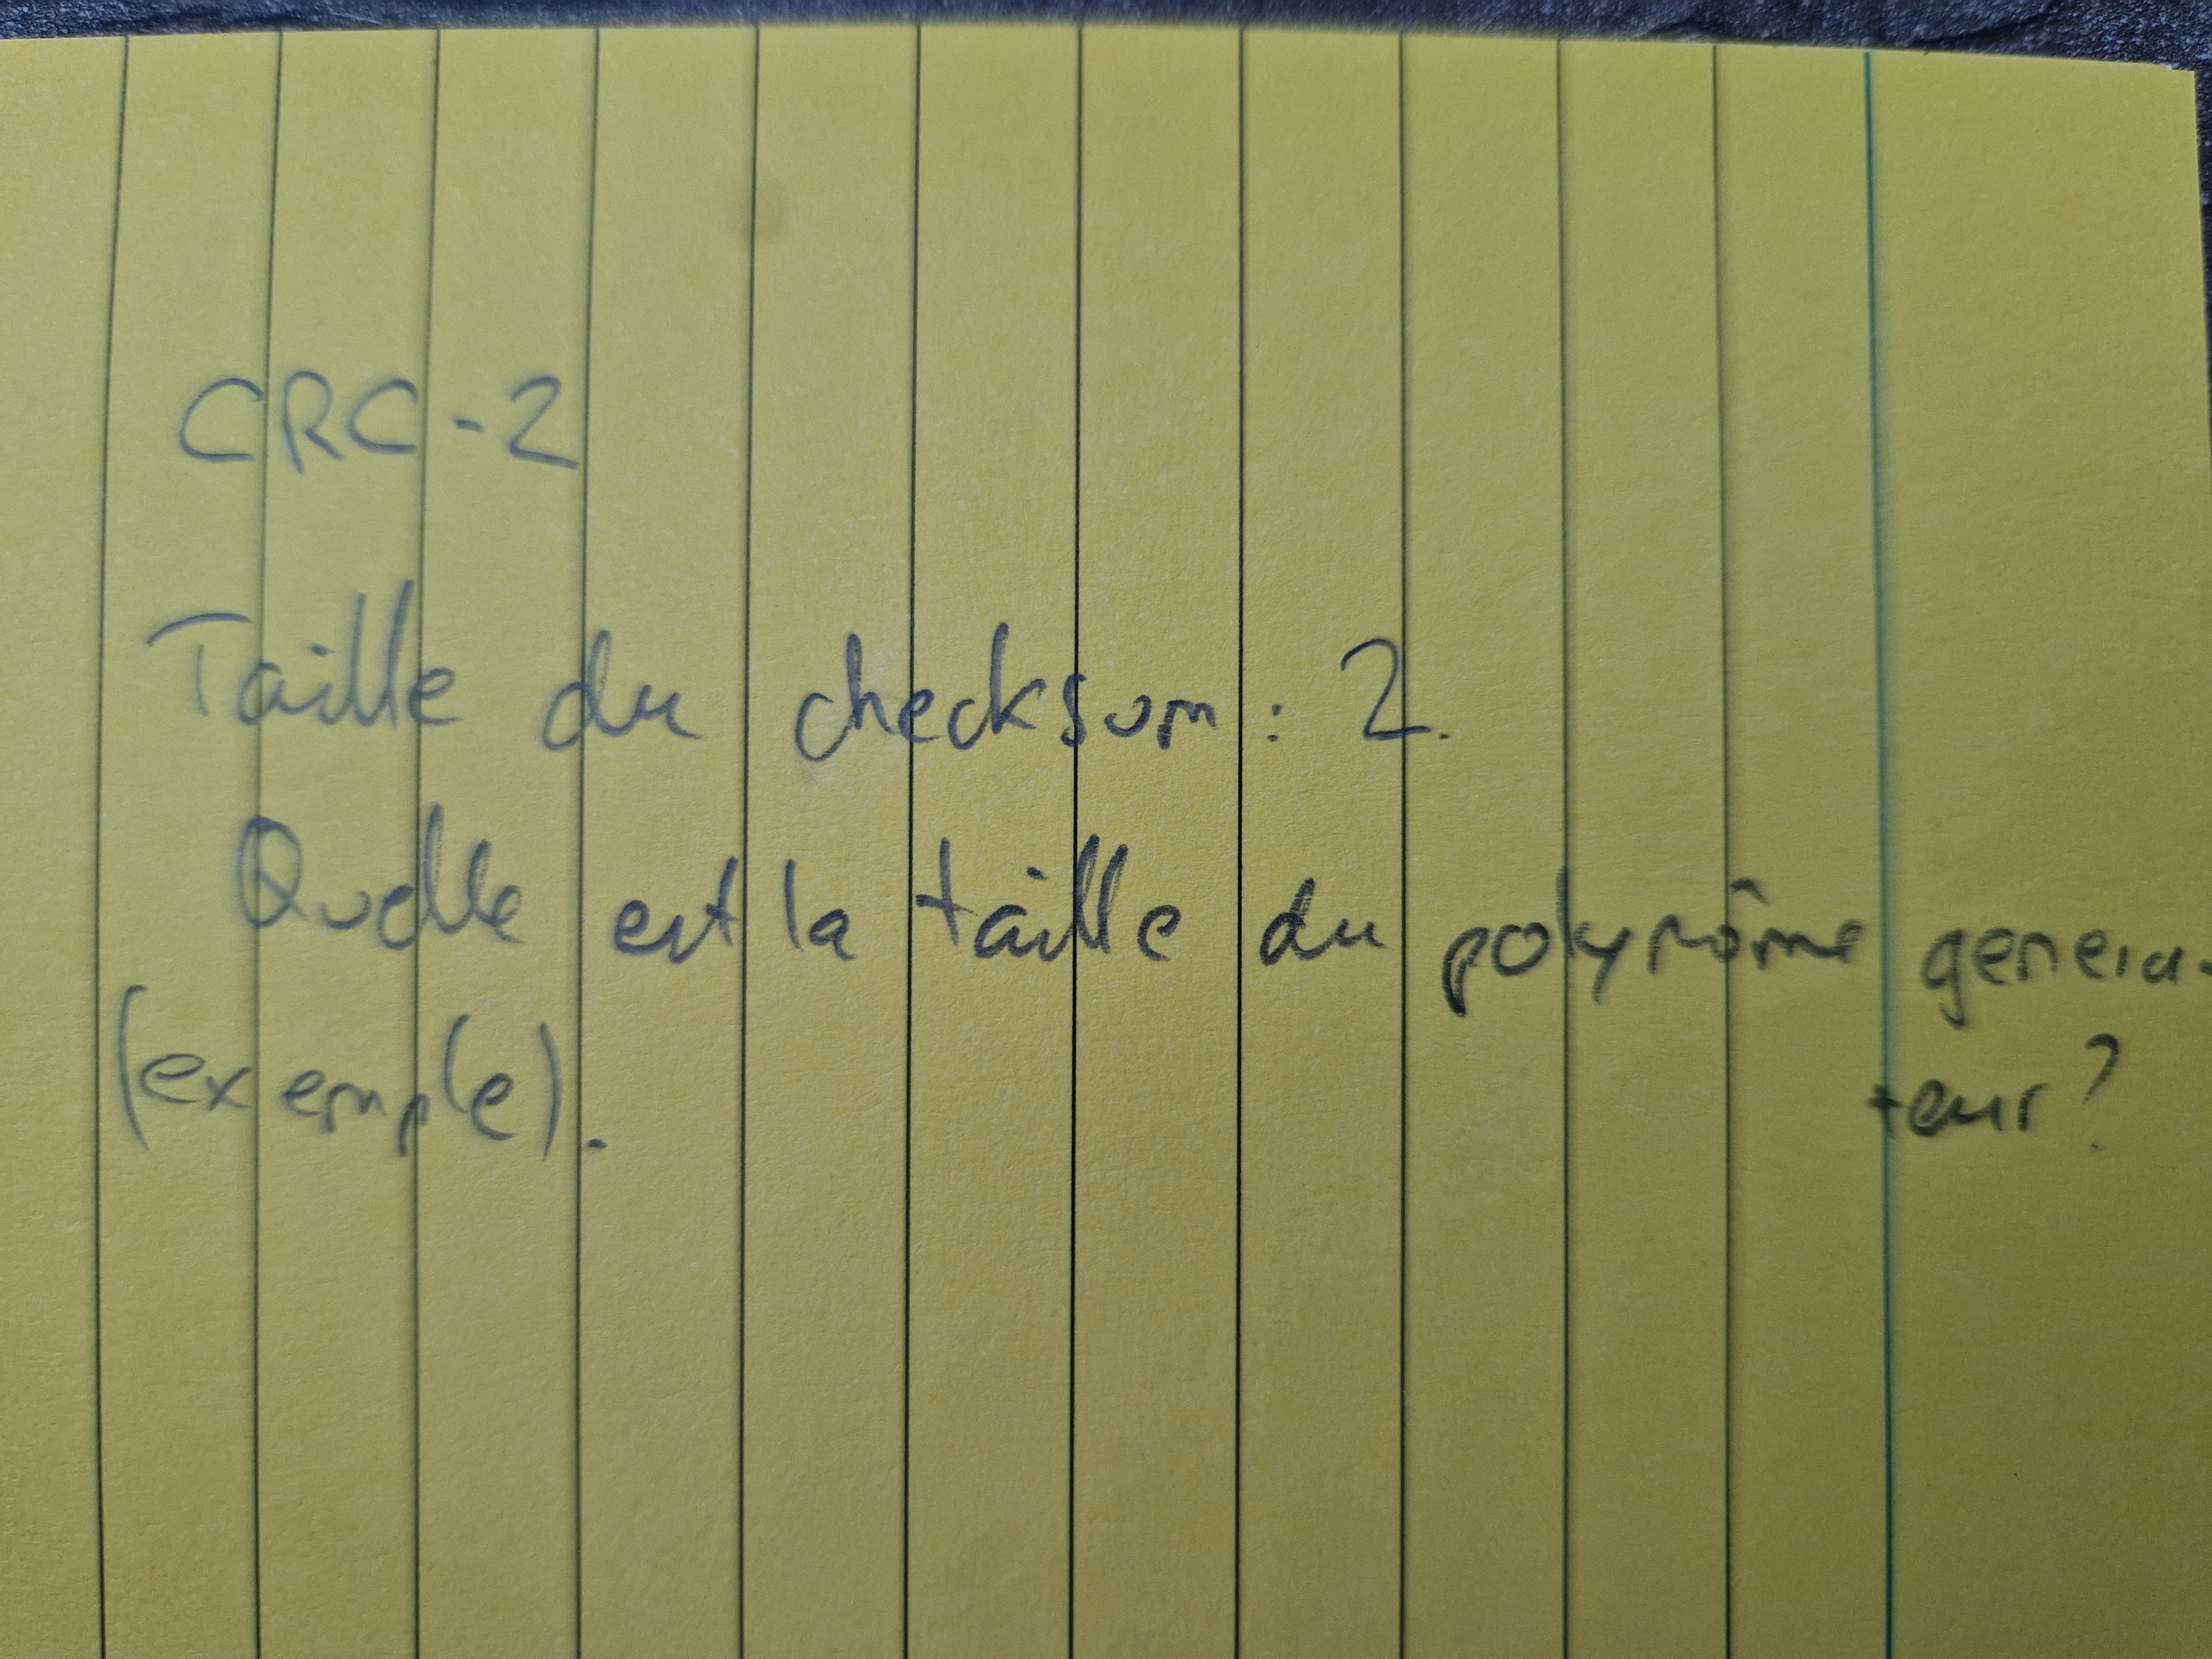 CRC-2
Taille du checksum : 2.
Quelle est la taille du polynôme généra-
teur ?
(exemple).